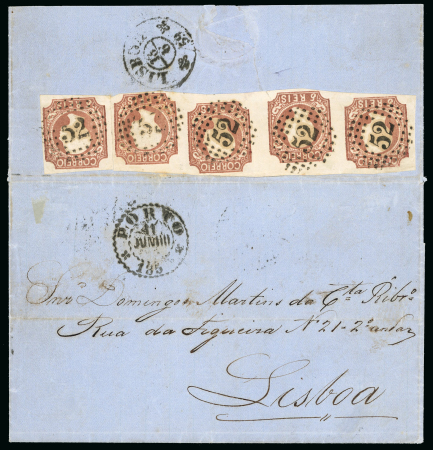 LISBOA
52
52
52
52
52
CORREIO
CORREIO
CORREIO
CORREIO
CORREIO
5 REIS
PORTO
JUNHO
185
Domingos Martins da Cta Ribro
Rua da Figueira N 21-2º andar
Lisboa